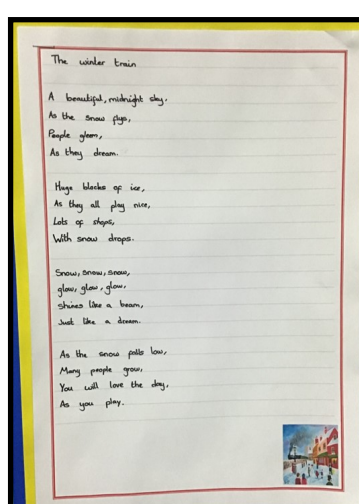 The winter train
A beautiful, midnight sky.
As the snow flys,
People gleem,
As they dream.
Huge blocks of ice,
As they all play nice,
Lots of shops,
With snow drops.
Snow, snow, snow,
glow, glow, glow,
shines like a beam,
Just like a dream.
As the snow falls low,
Many people grow,
You will love the day,
As you play.